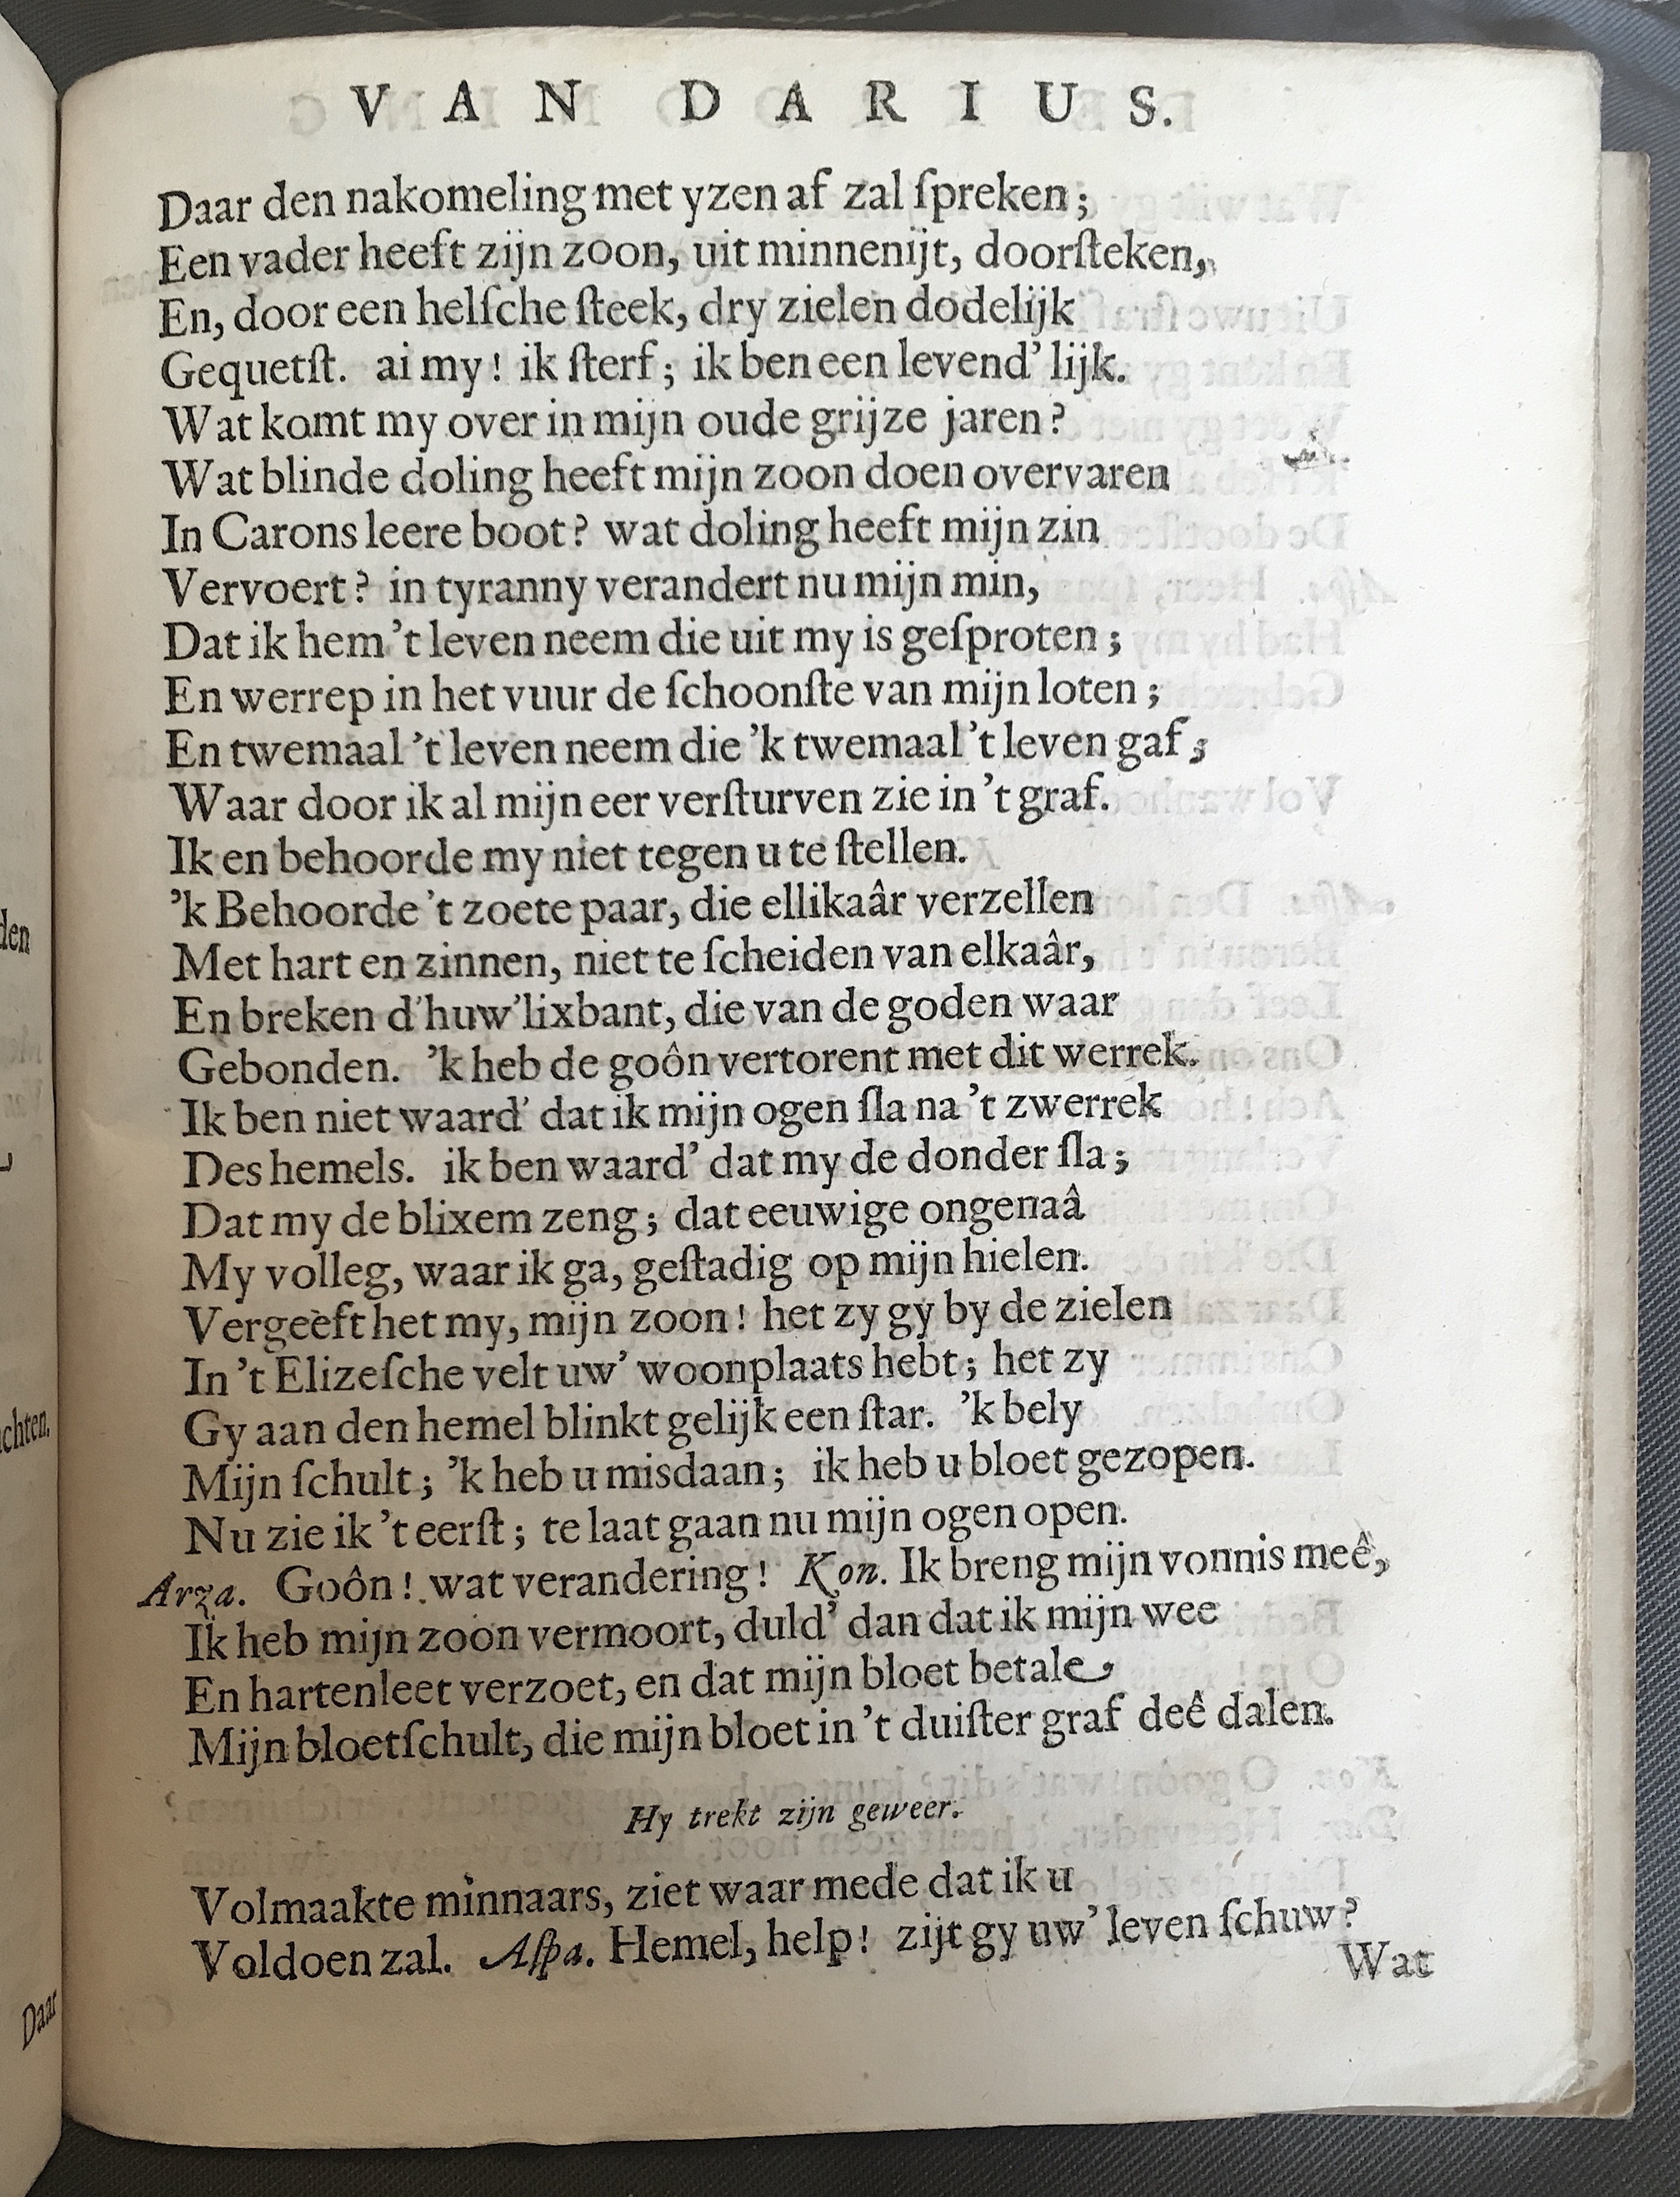 VAN DARIUS.
Daar den nakomeling met yzen af zal ſpreken;
Een vader heeft zijn zoon, uit minnenijt, doorſteken,
En, door een helſche ſteek, dry zielen dodelijk
Gequetſt. ai my! ik ſterf; ik ben een levend’ lijk.
Wat komt my over in mijn oude grijze jaren?
Wat blinde doling heeft mijn zoon doen overvaren
In Carons leere boot? wat doling heeft mijn zin
Vervoert? in tyranny verandert nu mijn min,
Dat ik hem ’t leven neem die uit my is geſproten;
En werrep in het vuur de ſchoonſte van mijn loten;
En twemaal ’t leven neem die ’k twemaal ’t leven gaf;
Waar door ik al mijn eer verſturven zie in ’t graf.
Ik en behoorde my niet tegen u te ſtellen.
’k Behoorde ’t zoete paar, die ellikaâr verzellen
Met hart en zinnen, niet te ſcheiden van elkaâr,
En breken d’huw’lixbant, die van de goden waar
Gebonden. ’k heb de goôn vertorent met dit werrek.
Ik ben niet waard’ dat ik mijn ogen ſla na ’t zwerrek
Des hemels. ik ben waard’ dat my de donder ſla;
Dat my de blixem zeng; dat eeuwige ongenaâ
My volleg, waar ik ga, geſtadig op mijn hielen.
Vergeeft het my, mijn zoon! het zy gy by de zielen
In ’t Elizeſche velt uw’ woonplaats hebt; het zy
Gy aan den hemel blinkt gelijk een ſtar. ’k bely
Mijn ſchult; ’k heb u misdaan; ik heb u bloet gezopen.
Nu zie ik ’t eerſt; te laat gaan nu mijn ogen open.
Arza. Goôn! wat verandering! Kon. Ik breng mijn vonnis meê,
Ik heb mijn zoon vermoort, duld’ dan dat ik mijn wee
En hartenleet verzoet, en dat mijn bloet betale
Mijn bloetſchult, die mijn bloet in ’t duiſter graf deê dalen.
Hy trekt zijn geweer.
Volmaakte minnaars, ziet waar mede dat ik u
Voldoen zal. Aſpa. Hemel, help! zijt gy uw’ leven ſchuw?
Wat
den
chten,
Daar